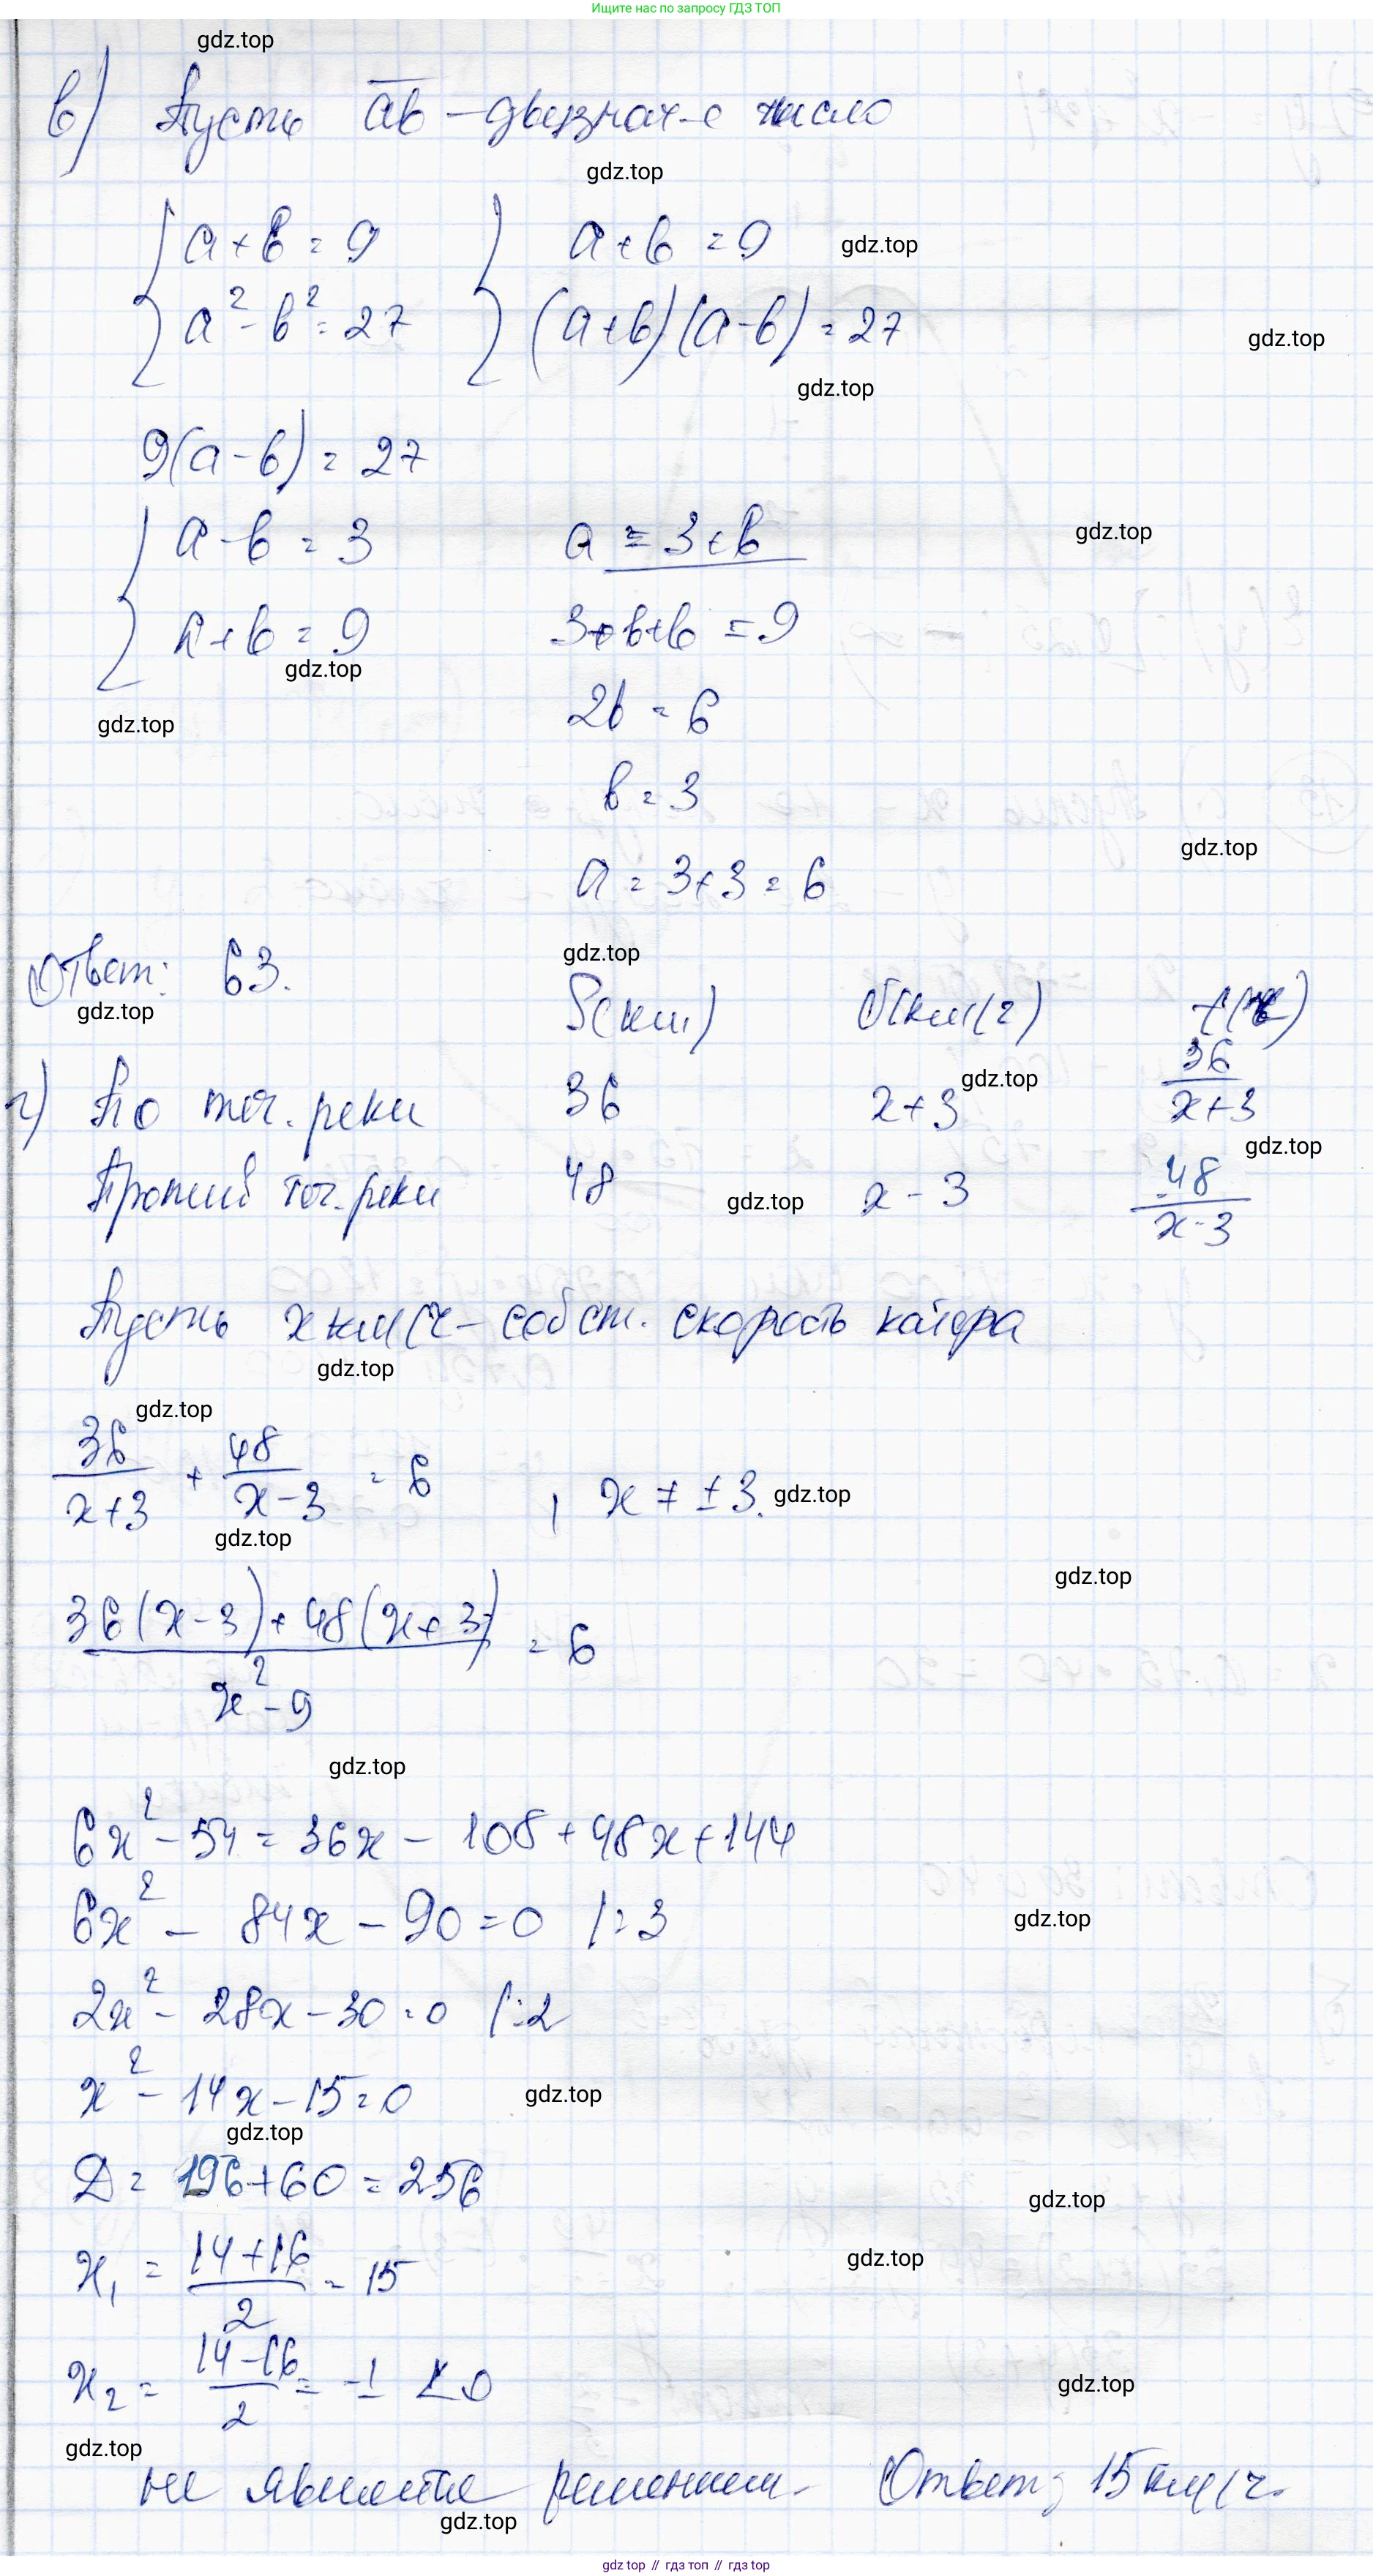 Ищите нас по запросу ГДЗ ТОП
gdz.top
в) Пусть ab – двузнач-е число
gdz.top
{ a+b = 9 } a+b = 9 gdz.top
a² - b² = 27 (a+b)(a-b) = 27
gdz.top
gdz.top
9(a-b) = 27
{ a-b = 3 a = 3+b gdz.top
a+b = 9 3+b+b = 9
gdz.top
gdz.top 2b = 6
b = 3
gdz.top
a = 3+3 = 6
Ответ: 63. gdz.top
gdz.top S(км) υ(км/ч) t(ч)
г) По теч. реки 36 x+3 gdz.top 36/(x+3)
gdz.top
Против теч. реки 48 gdz.top x-3 48/(x-3)
Пусть x км/ч – собст. скорость катера
gdz.top
gdz.top
36/(x+3) + 48/(x-3) = 6 , x ≠ ±3. gdz.top
gdz.top
gdz.top
(36(x-3)+48(x+3))/(x²-9) = 6
gdz.top
6x² - 54 = 36x - 108 + 48x + 144
6x² - 84x - 90 = 0 /:3 gdz.top
2x² - 28x - 30 = 0 /:2
x² - 14x - 15 = 0 gdz.top
gdz.top
D = 196+60 = 256 gdz.top
x₁ = (14+16)/2 = 15 gdz.top
x₂ = (14-16)/2 = -1 < 0 gdz.top
gdz.top
не является решением. Ответ: 15 км/ч.
gdz.top
gdz top // гдз топ // гдз top